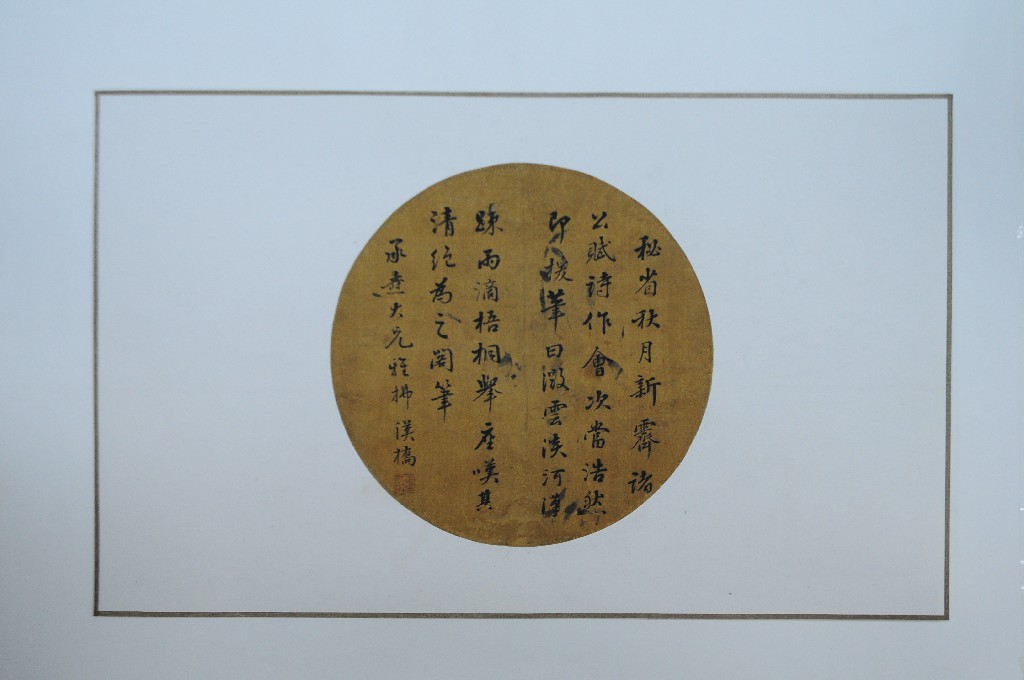 秘省秋月新霽諸
公賦詩作會次當浩然
即援筆曰澂雲淡河漢
踈雨滴梧桐舉座嘆其
清絕為之閣筆
承大兄雅拂 漢橋